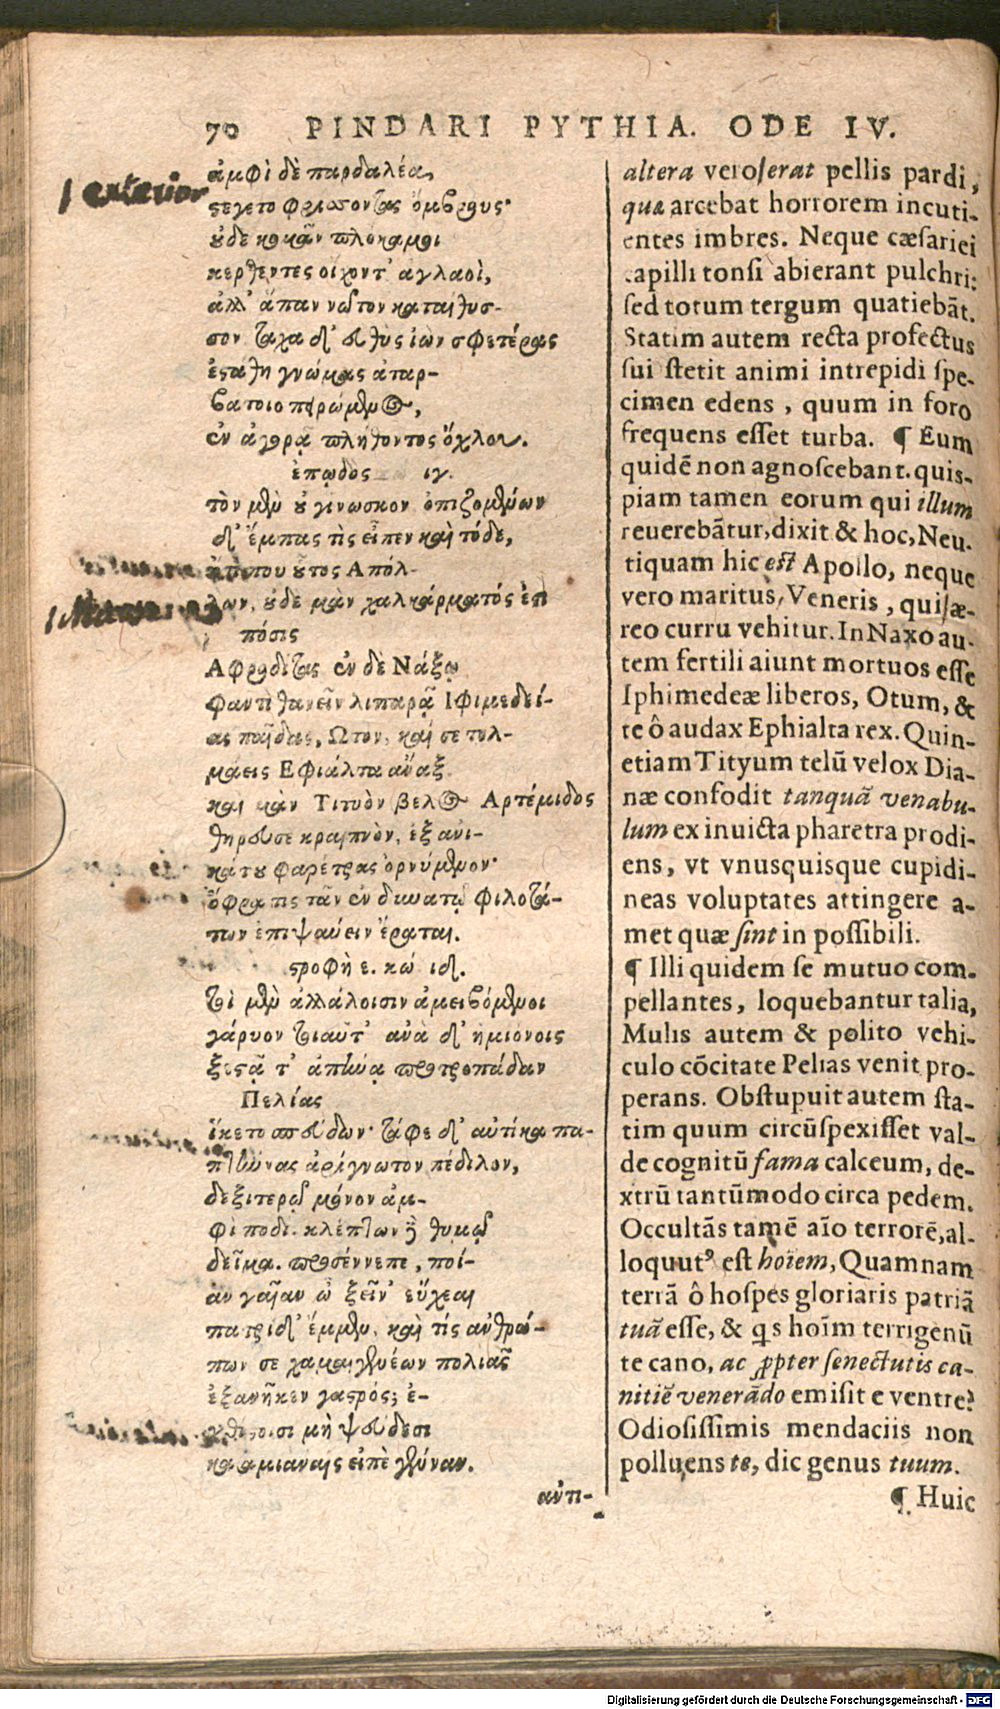 70 PINDARI PYTHIA. ODE IV.
ἀμφὶ δὲ παρδαλέα,
στέγετο φρίσσοντας ὄμβρους·
οὐδὲ κομᾶν πλόκαμοι
κερθέντες οἴχοντ' ἀγλαοὶ,
ἀλλ' ἅπαν νῶτον καταίθυσ-
σον τάχα δ' εὐθὺς ἰὼν σφετέρας
ἐστάθη γνώμας ἀταρ-
βάτοιο πειρώμενος,
ἐν ἀγορᾷ πλήθοντος ὄχλου.
ἐπῳδὸς ιγ.
τὸν μὲν οὐ γίνωσκον ὀπιζομένων
δ' ἔμπας τὶς εἶπεν καὶ τόδε,
οὔτι που οὗτος Ἀπόλ-
λων, οὐδὲ μὰν χαλκάρματός ἐστι
πόσις
Ἀφροδίτας ἐν δὲ Νάξῳ
φαντὶ θανεῖν λιπαρᾷ Ἰφιμεδεί-
ας παῖδας, Ὦτον, καὶ σε τολ-
μάεις Ἐφιάλτα ἄναξ
καὶ μὰν Τιτυὸν βέλος Ἀρτέμιδος
θήρευσε κραιπνὸν, ἐξ ἀνι-
κάτου φαρέτρας ὀρνύμενον·
ὄφρα τις τᾶν ἐν δυνατῷ φιλοτά-
των ἐπιψαύειν ἔραται.
στροφὴ ε. κώ. ιδ.
Τοὶ μὲν ἀλλάλοισιν ἀμειβόμενοι
γάρυον τοιαῦτ' ἀνὰ δ' ἡμιόνοις
ξεστᾷ τ' ἀπήνᾳ προτροπάδαν
Πελίας
ἵκετο σπεύδων· τάφε δ' αὐτίκα πα-
πτήνας ἀρίγνωτον πέδιλον,
δεξιτερῷ μόνον ἀμ-
φὶ ποδί. κλέπτων δὲ θυμῷ
δεῖμα. προσέννεπε, ποί-
αν γαῖαν ὦ ξεῖν' εὔχεαι
πατρίδ' ἔμμεν. καὶ τίς ἀνθρώ-
πων σε χαμαιγενέων πολιᾶς
ἐξανῆκεν γαστρός; ἐ-
χθίστοισι μὴ ψεύδεσι
καταμιάναις εἰπὲ γένναν.
αὐτι-
exterior
altera vero serat pellis pardi,
quæ arcebat horrorem incuti-
entes imbres. Neque cæsariei
capilli tonsi abierant pulchri:
sed totum tergum quatiebāt.
Statim autem recta profectus
sui stetit animi intrepidi spe-
cimen edens, quum in foro
frequens esset turba. ¶ Eum
quidē non agnoscebant. quis-
piam tamen eorum qui illum
reuerebātur, dixit & hoc, Neu-
tiquam hic est Apollo, neque
vero maritus Veneris, qui æ-
reo curru vehitur. In Naxo au-
tem fertili aiunt mortuos esse
Iphimedeæ liberos, Otum, &
te ô audax Ephialta rex. Quin-
etiam Tityum telū velox Dia-
næ confodit tanquā venabu-
lum ex inuicta pharetra prodi-
ens, vt vnusquisque cupidi-
neas voluptates attingere a-
met quæ sint in possibili.
¶ Illi quidem se mutuo com-
pellantes, loquebantur talia,
Mulis autem & polito vehi-
culo cōcitate Pelias venit pro-
perans. Obstupuit autem sta-
tim quum circūspexisset val-
de cognitū fama calceum, de-
xtrū tantūmodo circa pedem.
Occultās tamē aīo terrorē, al-
loquutꝰ est hoīem, Quamnam
terrā ô hospes gloriaris patriā
tuā esse, & qs hoīm terrigenū
te cano, ac ꝓpter senectutis ca-
nitiē venerādo emisit e ventre?
Odiosissimis mendaciis non
polluens te, dic genus tuum.
¶ Huic
Digitalisierung gefördert durch die Deutsche Forschungsgemeinschaft - DFG